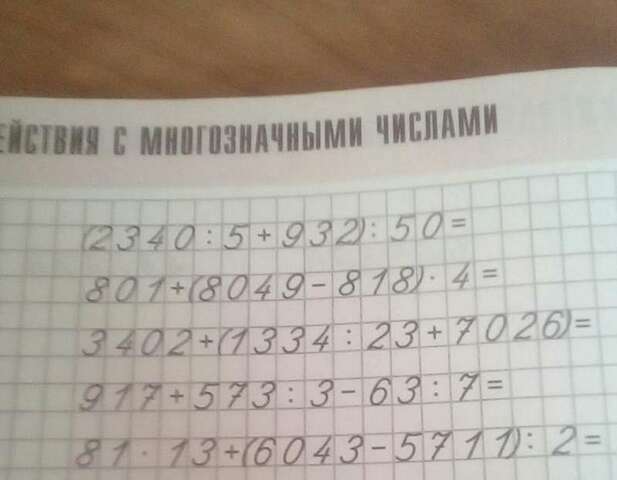 ЕЙСТВИЯ С МНОГОЗНАЧНЫМИ ЧИСЛАМИ
(2340:5+932):50=
801+(8049-818)·4=
3402+(1334:23+7026)=
917+573:3-63:7=
81·13+(6043-5711):2=